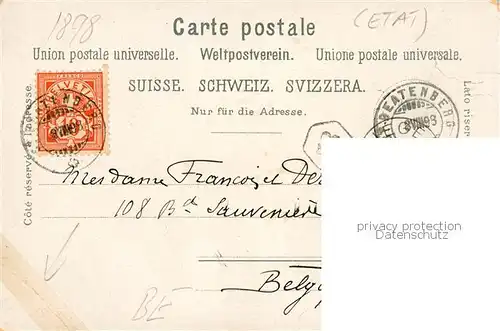 1898
(ETAT)
Carte postale
Union postale universelle. Weltpostverein. Unione postale universale.
SUISSE. SCHWEIZ. SVIZZERA.
Nur für die Adresse.
Côté réservé à l'adresse.
Lato riser
HELVETIA
10
BEATENBERG
privacy protection watermark
Mesdames François et De
108 Bd Sauvenière
Belg
BE